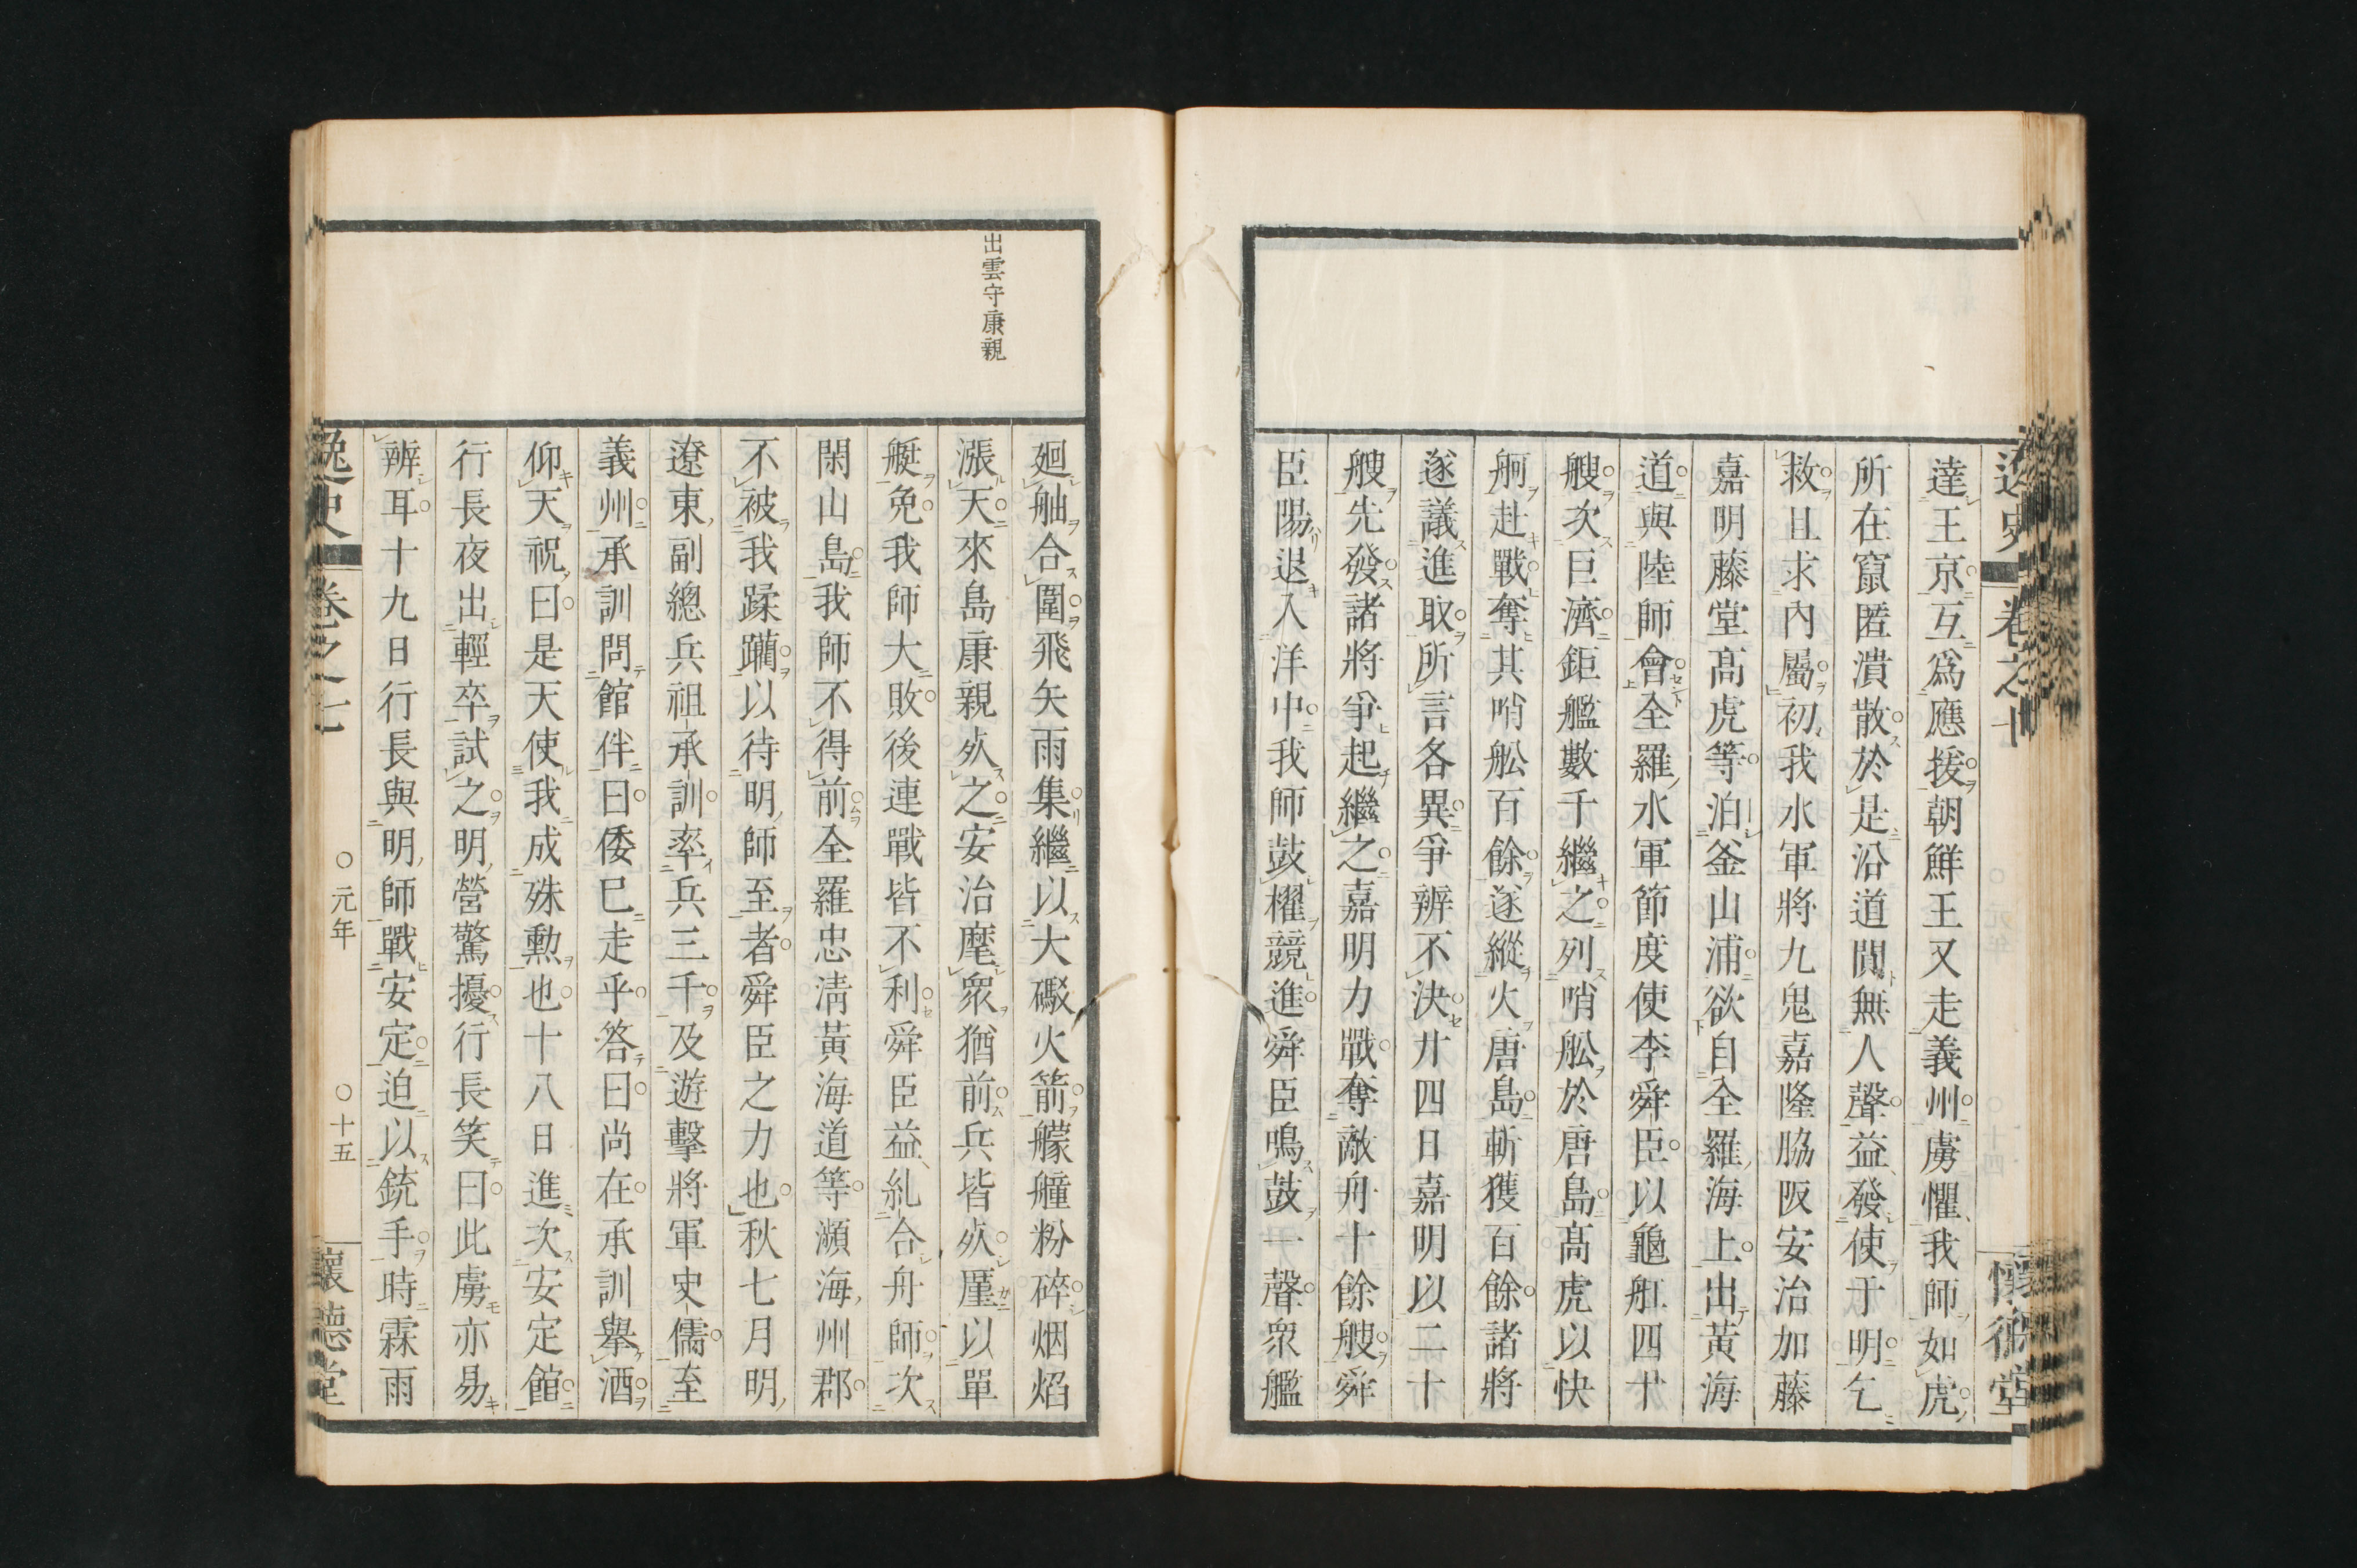 達王京互爲應援朝鮮王又走義州虜懼我師如虎
所在竄匿潰散於是沿道閴無人聲益發使于明乞
救且求內屬初我水軍將九鬼嘉隆脇阪安治加藤
嘉明藤堂高虎等泊釜山浦欲自全羅海上出黃海
道與陸師會全羅水軍節度使李舜臣以龜舡四十
艘次巨濟鉅艦數千繼之列哨舩於唐島高虎以快
舸赴戰奪其哨舩百餘遂縱火唐島斬獲百餘諸將
遂議進取所言各異爭辨不決廿四日嘉明以二十
艘先發諸將爭起繼之嘉明力戰奪敵舟十餘艘舜
臣陽退入洋中我師鼓櫂競進舜臣鳴鼓一聲衆艦
出雲守康親
廻舳合圍飛矢雨集繼以大礮火箭艨艟粉碎烟焰
漲天來島康親死之安治麾衆猶前兵皆死厪以單
艇免我師大敗後連戰皆不利舜臣益糺合舟師次
閑山島我師不得前全羅忠淸黃海道等瀕海州郡
不被我蹂躪以待明師至者舜臣之力也秋七月明
遼東副總兵祖承訓率兵三千及遊擊將軍史儒至
義州承訓問館伴曰倭已走乎答曰尚在承訓舉酒
仰天祝曰是天使我成殊勳也十八日進次安定館
行長夜出輕卒試之明營驚擾行長笑曰此虜亦易
辨耳十九日行長與明師戰安定迫以銃手時霖雨
逸史 卷之七 ○元年 ○十五 懷德堂